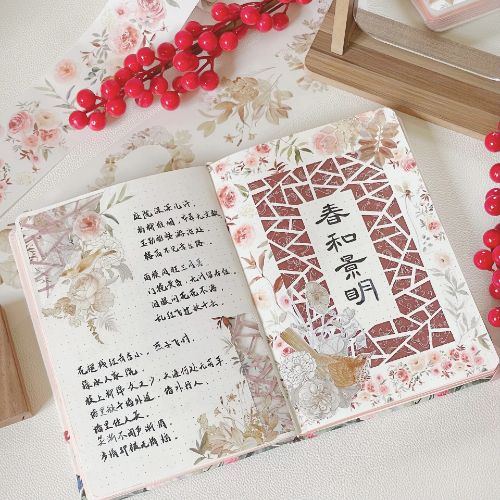 庭院深深几许，
杨柳堆烟，帘幕无重数
玉勒雕鞍游冶处
楼高不见章台路。
雨横风狂三月暮
门掩黄昏，无计留春住
泪眼问花花不语
乱红飞过秋千去。
花褪残红青杏小，燕子飞时，
绿水人家绕。
枝上柳绵吹又少，天涯何处无芳草
墙里秋千墙外道，墙外行人，
墙里佳人笑。
笑渐不闻声渐悄
多情却被无情恼。
春和景明